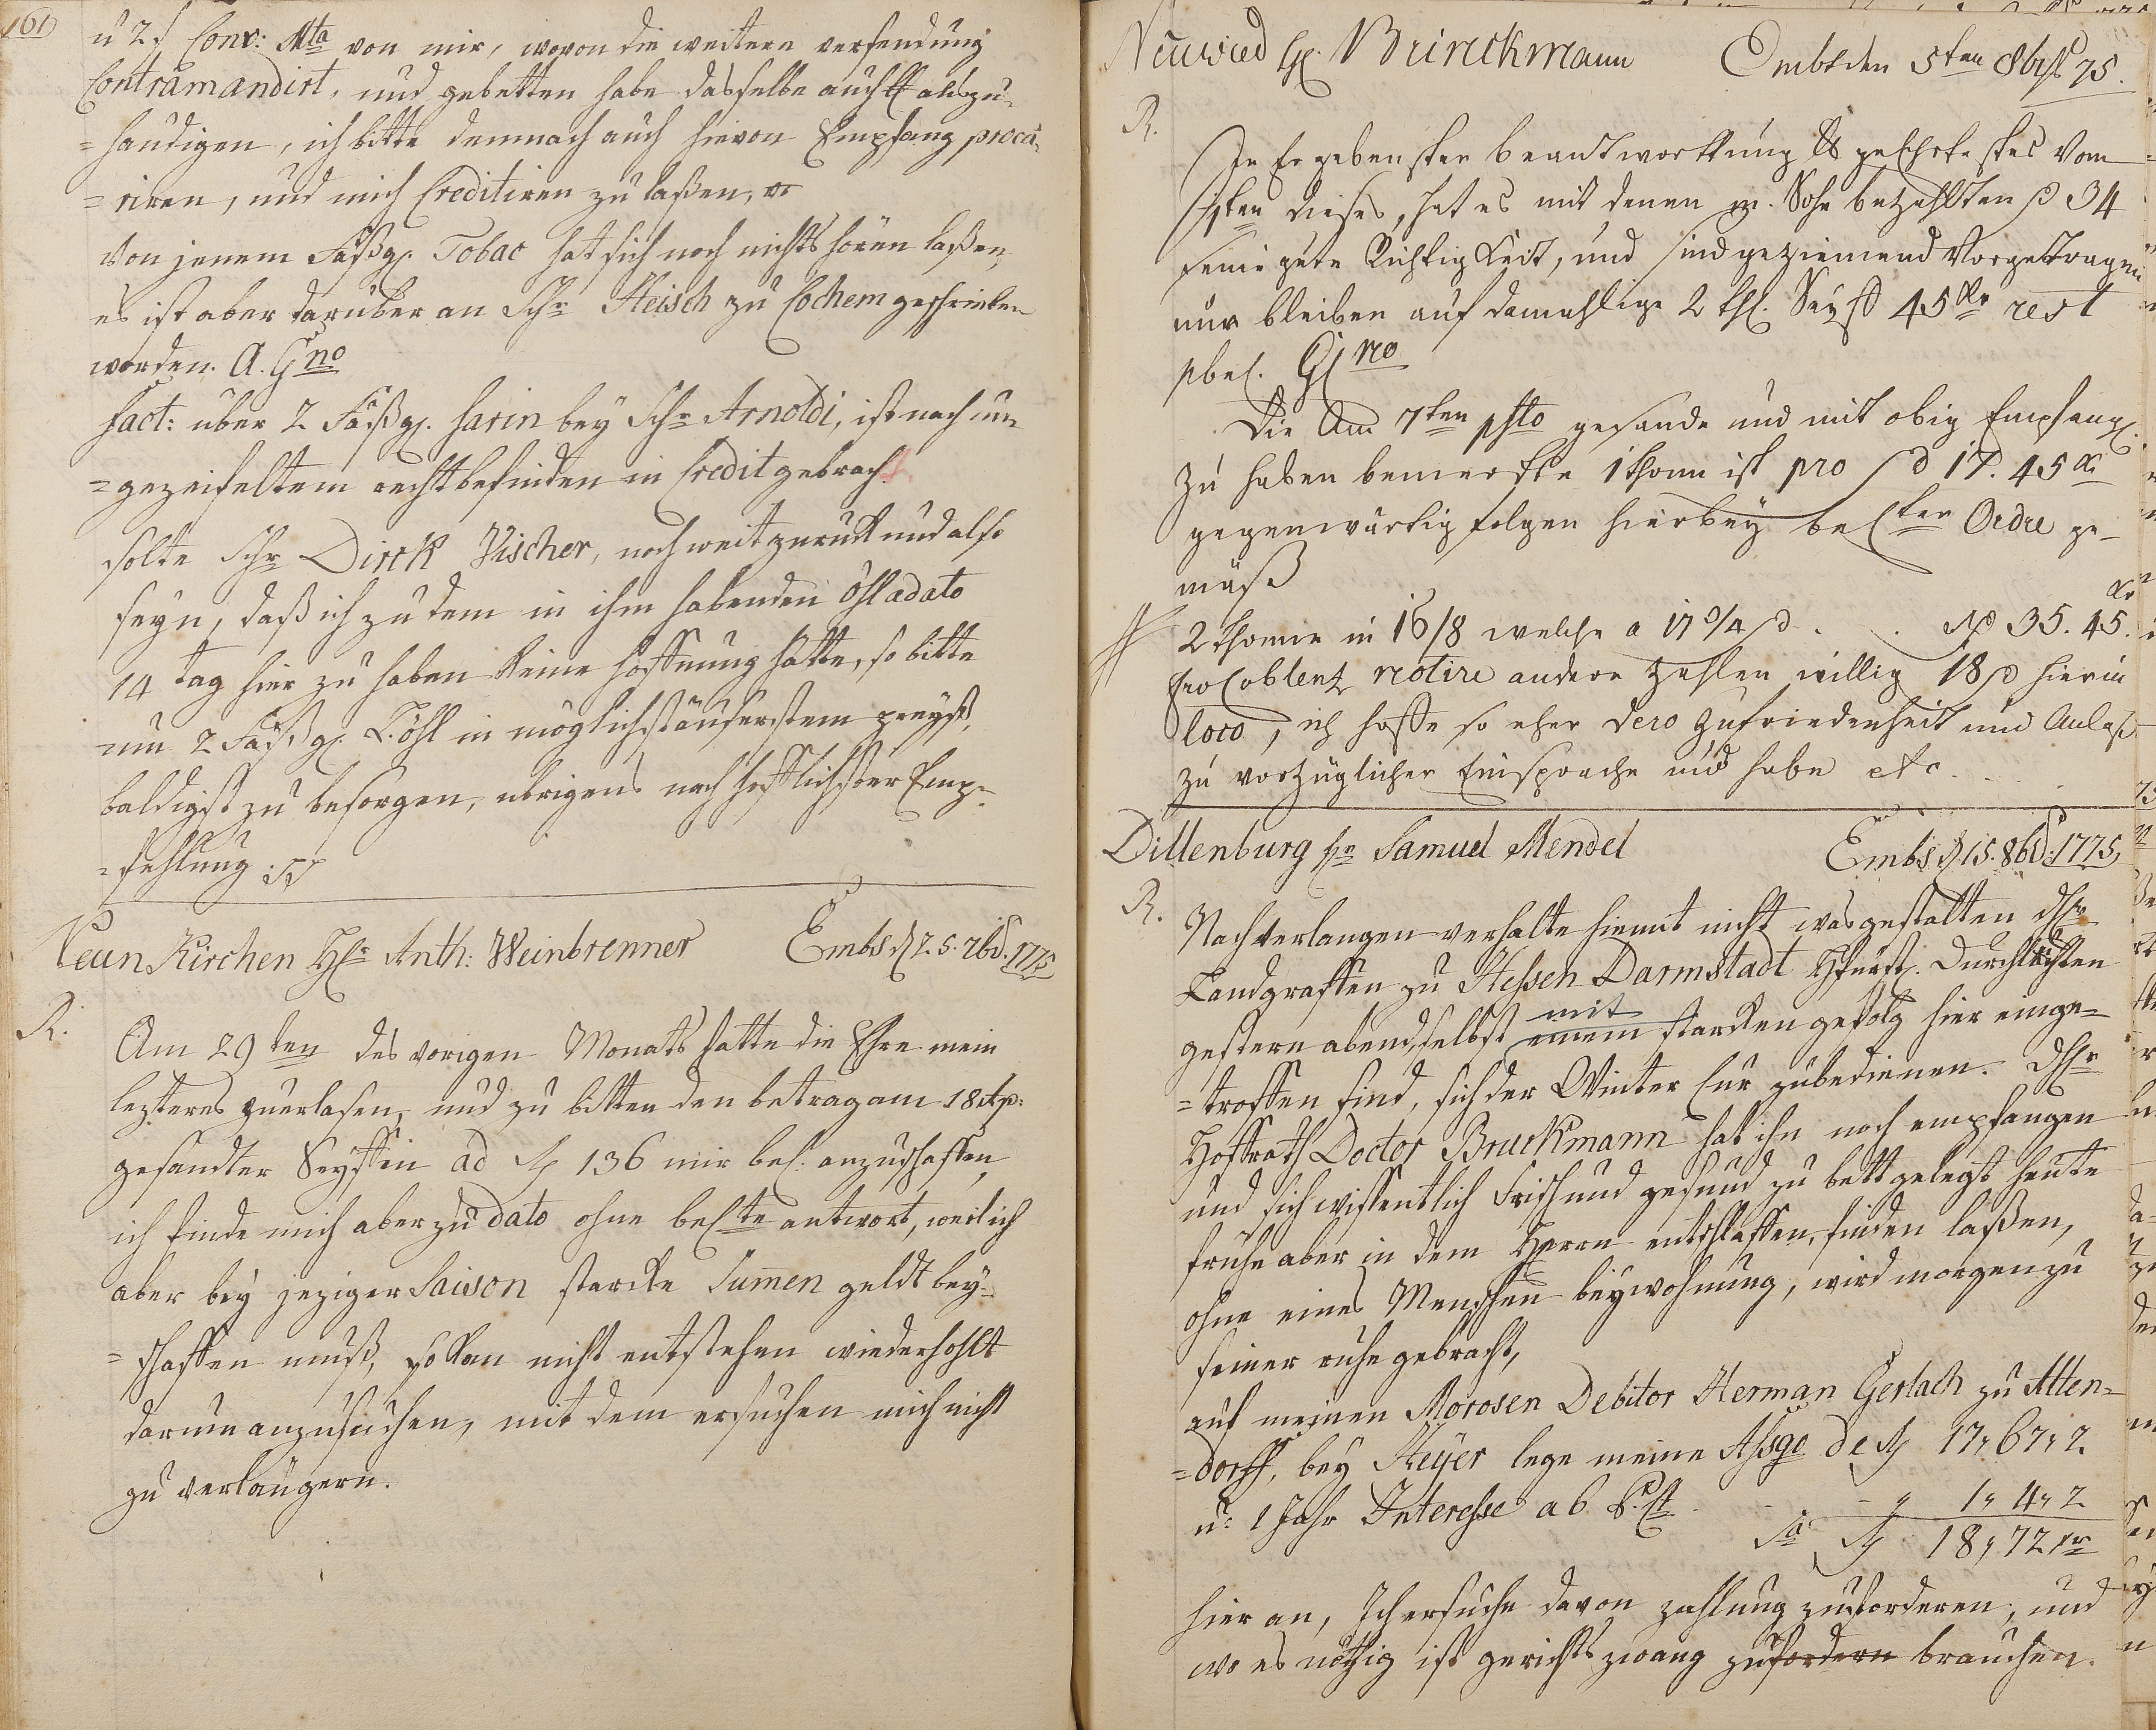 161
u 2 f Conv: Mta von mir, wovon die weitere versendung
Contramandirt, und gebetten habe dasselbe auch
=händigen, ich bitte demnach auch hievon Empfang procu¬
=riren, und mich Creditiren zu laßen,
Von jenem Fäßg. Tobac hat sich noch nichts hören laßen,
es ist aber darüber an Schr Heisch zu Cochem geschrieben
worden. A. Gno
fact: über 2 Fäßg. farin bey Schr Arnoldi, ist nach
=gezeifeltem rechtbefinden in Credit gebracht
solte Schr Dirck Vischer, noch weit zurück und also
seyn, daß ich zu dem in ihm habenden Öhl a dato
14 tag hier zu haben keine Hoffnung hätte, so bitte
um 2 Fäßg. L. öhl in möglichst äuserstem preyß,
baldigst zu besorgen, übrigens nach höfflichster Emp=
=fehlung
Neun Kirchen Hr Anth: Weinbrenner Embs d 2.5. 7b. 1775
R.
Am 29ten des vorigen Monats hatte die Ehre mein
lezteres zuerlasen, und zu bitten den betrag am 18
gesandter Seyffen ad 136 mir bel. anzuschaffen,
ich finde mich aber zu dato ohne belte antwort, weil ich
aber bey jeziger Saison starcke Sum̄en geldt bey=
=schaffen muß, so kan nicht entstehen wiederhohlt
darum anzusuchen, mit dem ersuchen mich nicht
zu verlängern.
Neuwied H. Brinckmann Embs den 5ten 8br 75.
R.
In Ergebenster beantworttung geEhrtestes Vom
1ten dieses, hat es mit denen Sohn bezahlten 34
seine gute Richtigkeit, und sind geziemend Vorgetragen
nur bleiben auf damahlige 2 Seyff 45 Xr rest
pbel. Gno
Die Am 7ten gesande und mit obig Empfang
zu haben bemerckte 1 thonn ist pro 17. 45 Xr
gegenwärtig folgen hierbey belter Ordre ge¬
mäß
2 thonne in 16/8 welche a 17 3/4 . . 35. 45. Xr
fco Coblentz notire andere zahlen willig 18 hier in
loco, ich hoffe so eher dero Zufriedenheit und Anlaß
zu vorzüglicher Einsprache und habe etc.
Dillenburg Hr Samuel Mendel Embs d 15. 8b. 1775,
R.
Nachverlangen verhalte hiemit nicht wasgestalten
Landgraffen zu Heßen Darmstadt Hfürst. Durchlauchten
gestern abend, selbst mit einem starcken gefolg hier einge=
=troffen sind, sich der Winter Cur zubedienen.
Hoffrath Doctor Bruckmann hat ihn noch empfangen
und sich wissentlich Frisch und gesund zu bett gelegt heute
frühe aber in dem Herrn entschlaffen, finden laßen,
ohne eines Menschen beywohnung, wird morgen zu
seiner ruhe gebracht,
auf meinen Morosen Debitor Herman Gerlach zu Atten=
=dorff, bey Heyer lege meine Aßge de 17, 67, 2
u: 1 Jahr Interesse a 6 P. Ct - - 1, 4, 2
Sa 18, 72 xr
hier an, Ich ersuche davon zahlung zu forderen, und
wo es nöthig ist gerichts zwang zu fordern brauchen.